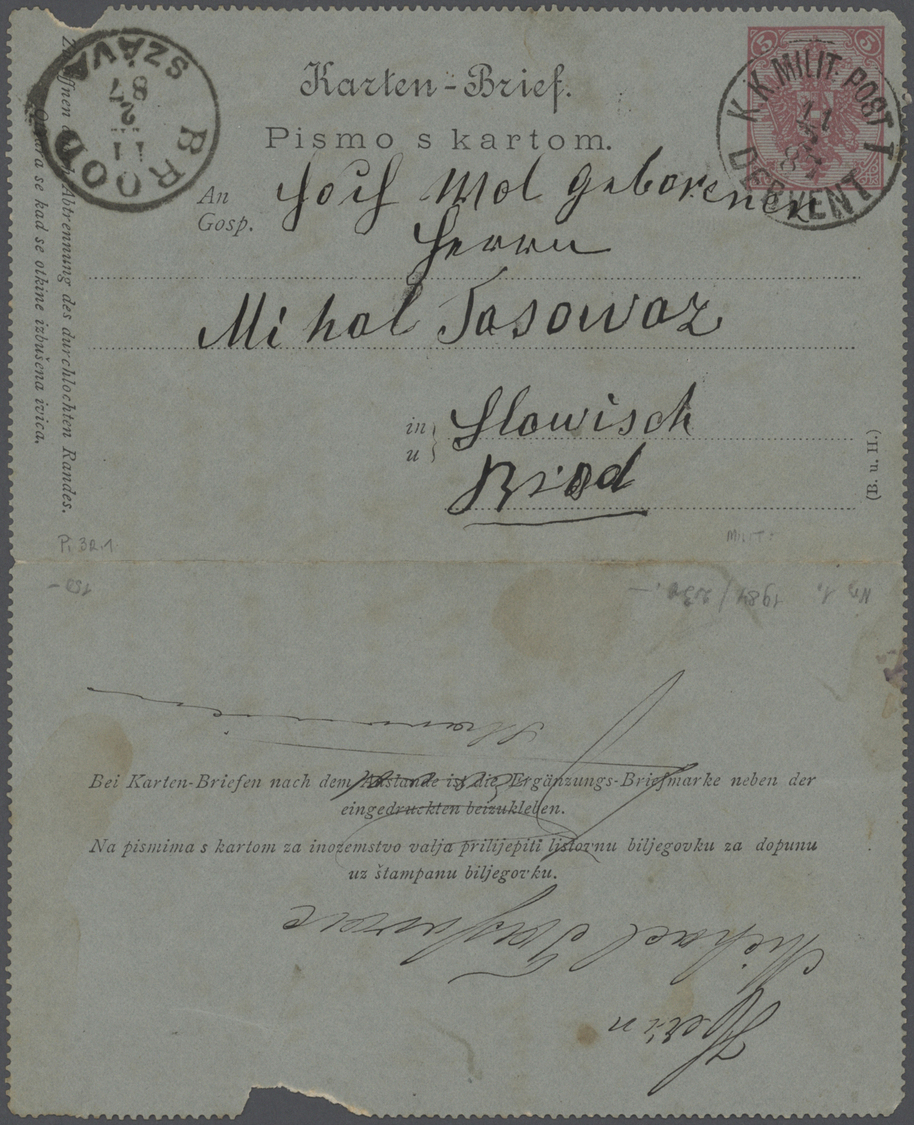 Karten-Brief.
Pismo s kartom.
An
Gosp.
Hoch Wol Geborenen
Herrn
Mihal Tasowaz
in
u
Slowisch
Brod
(B. u. H.)
5 5
K.K. MILIT. POST
11
DERVENT
BROOD
SZÁVA
11
2
87
Abtrennung des durchlochten Randes.
se kad se otkine izbušena ivica.
P. 3a.1
MILIT:
150 –
1984 / 230.–
Bei Karten-Briefen nach dem Auslande ist die Ergänzungs-Briefmarke neben der
eingedruckten beizukleben.
Na pismima s kartom za inozemstvo valja prilijepiti listovnu biljegovku za dopunu
uz štampanu biljegovku.
Herin
Michael